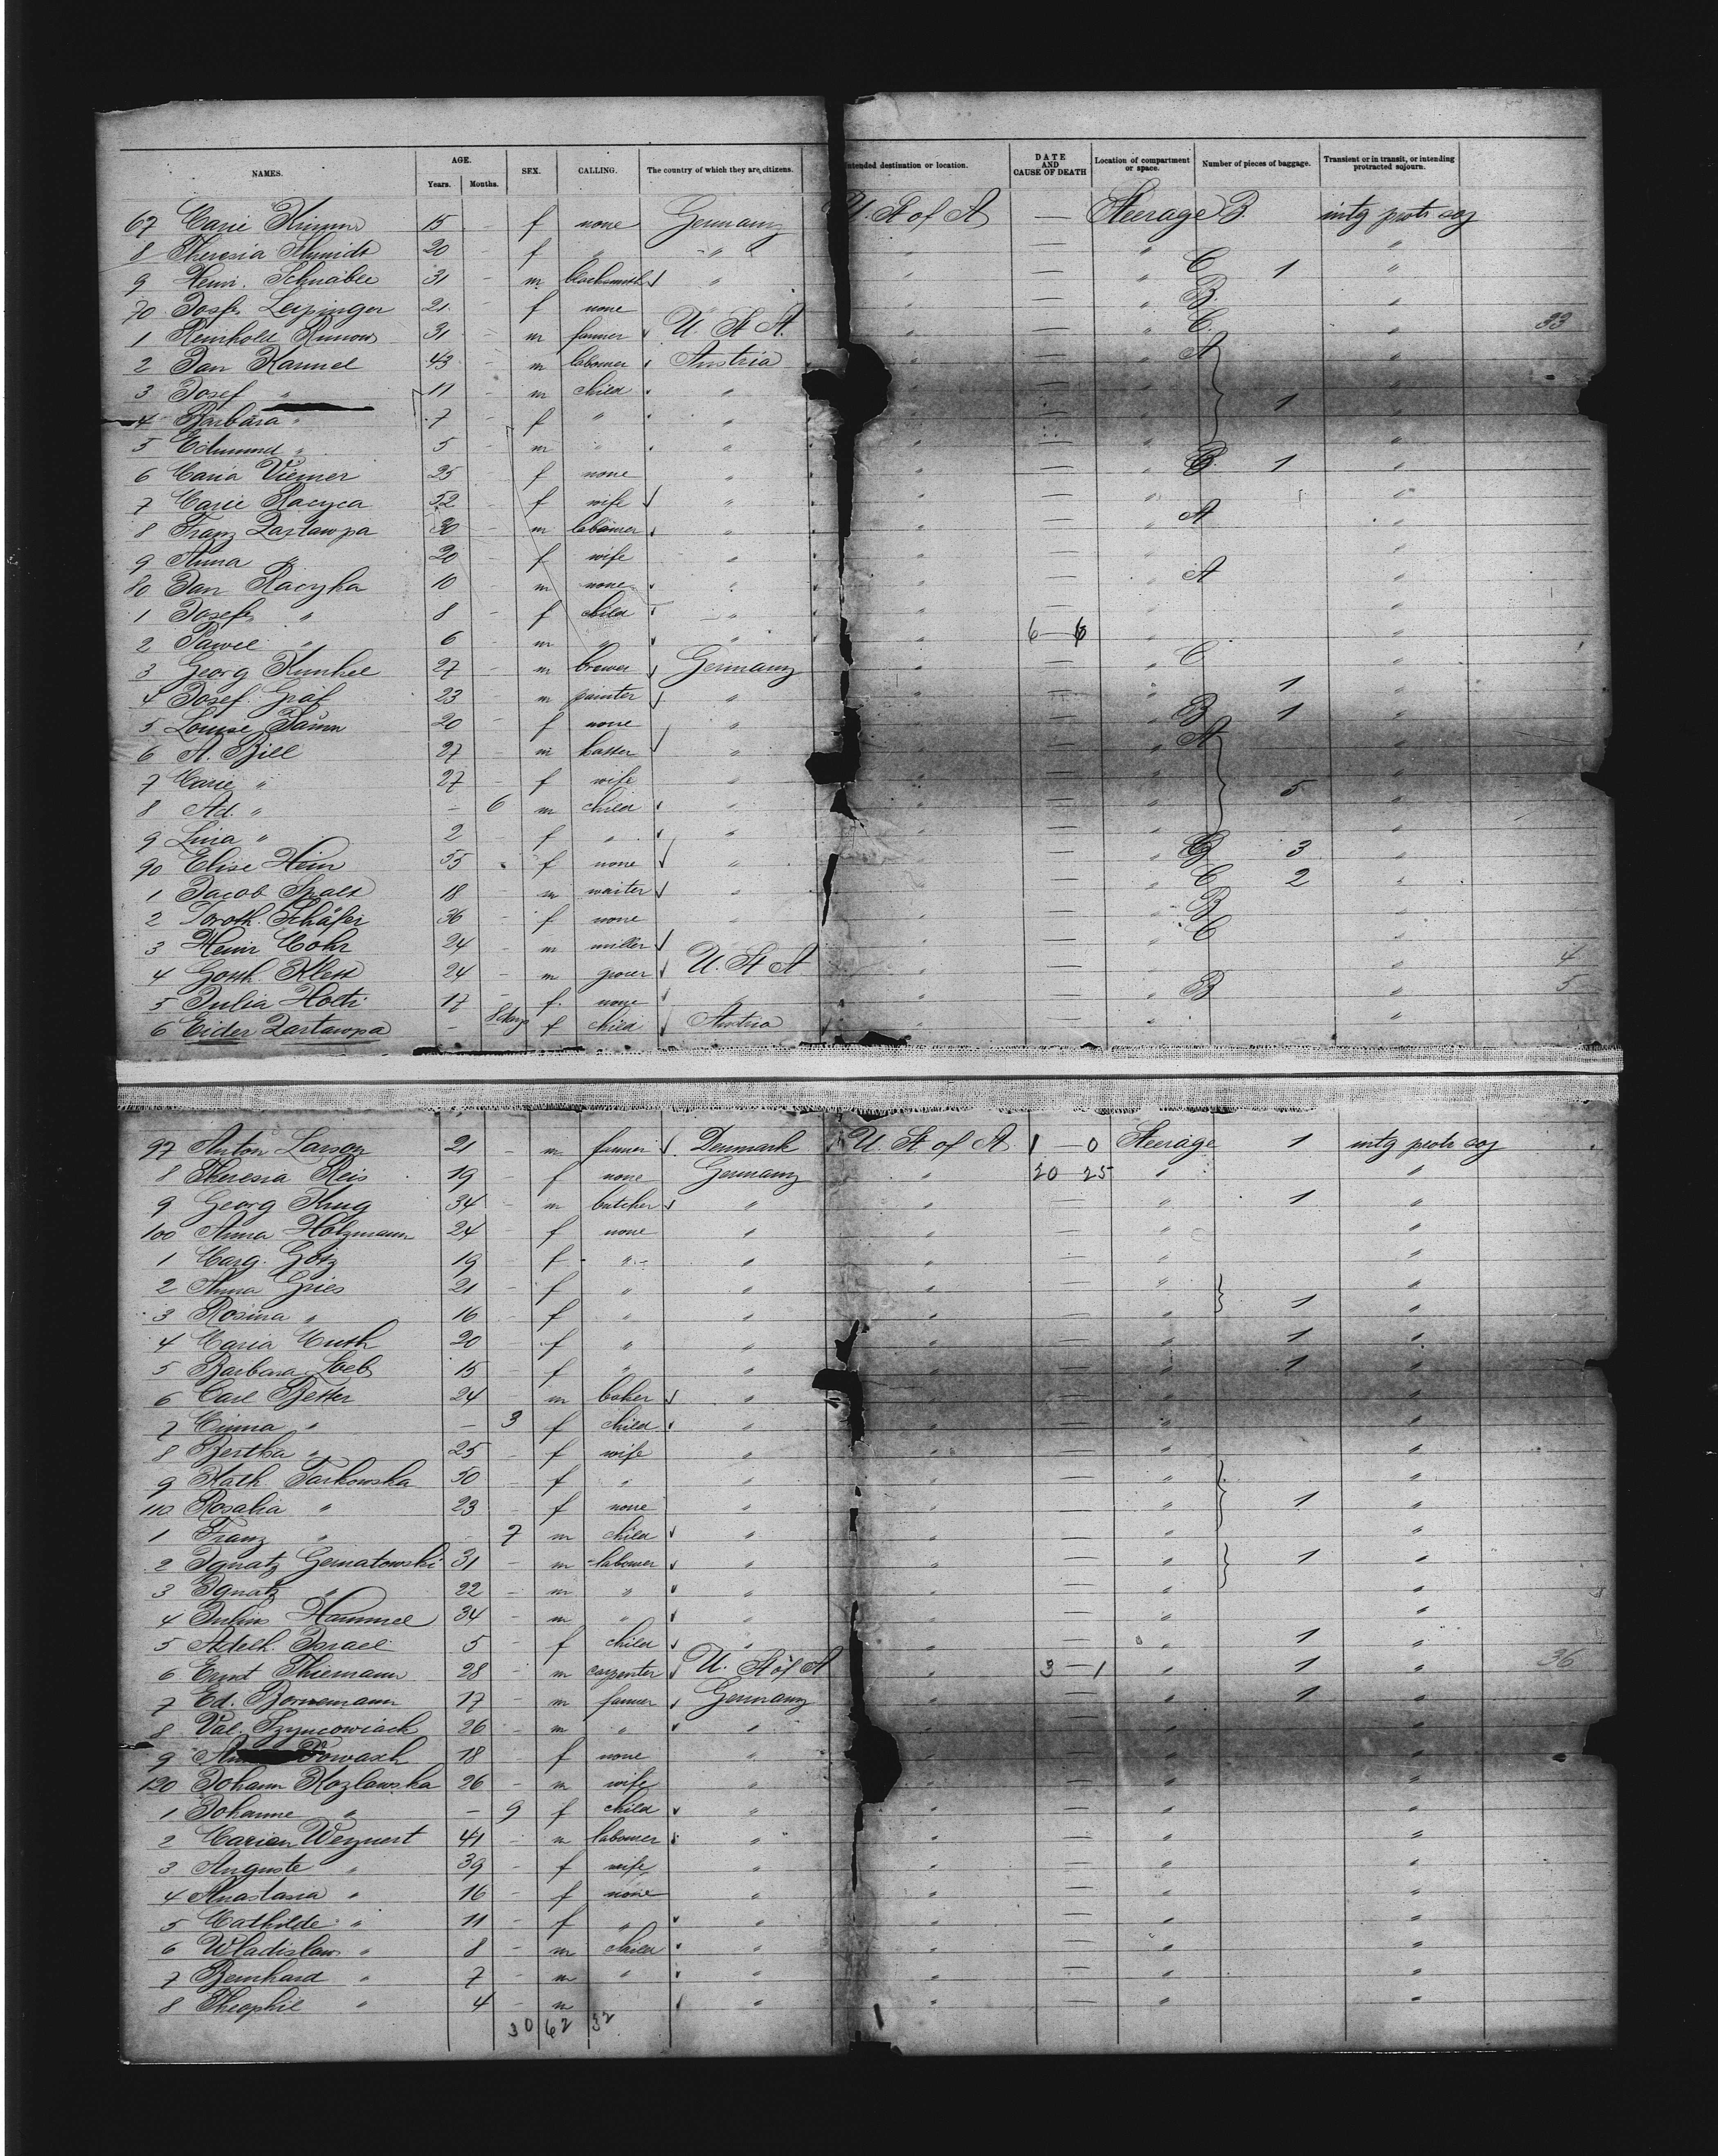 NAMES. AGE. Years. Months. SEX. CALLING. The country of which they are citizens. Intended destination or location. DATE AND CAUSE OF DEATH Location of compartment or space. Number of pieces of baggage. Transient or in transit, or intending protracted sojourn.
67 Marie Kimm 15 - f none Germany U. St of A — Steerage B. intg protr soj
8 Theresia Schmidt 20 f " " — "
9 Heinr. Schnäbele 31 - m blacksmith " " — " C 1 "
70 Josef. Leipinger 21 f none " — " B. "
1 Reinhold Runow 31 - m farmer U. St A. " — " C. " 33
2 Jan Kammel 43 - m labourer Austria " — " A "
3 Josef " 11 - m child " " — " "
4 Barbara " 7 f " " " 1 "
5 Edmund " 5 m " " " — " "
6 Maria Viemer 25 f none " " — " B. 1 "
7 Marie Raczca 52 - f wife " " — " "
8 Franz Zastawpa 30 m labourer " " — " A "
9 Anna " 20 f wife " " — " "
80 Jan Raczka 10 m none " " — " A "
1 Josefa " 8 - f child " " — " "
2 Pawel " 6 m " " " 6 — 6 " "
3 Georg Kunkel 27 - m brewer Germany " — " C "
4 Josef Graf 23 - m painter " " — " 1 "
5 Louise Tamm 20 - f none " " — " B 1 "
6 A. Bill 27 - m hatter " " — " A "
7 Marie " 27 - f wife " " — " "
8 Ad. " - 6 m child " " — " 5 "
9 Lina " 2 f " " " — " "
90 Elise Hein 55 f none " " — " B 3 "
1 Jacob Spalt 18 - m waiter " " — " C 2 "
2 Doroth. Schäfer 36 - f none " " — " B "
3 Heinr Mohr 24 - m miller " — " C "
4 Gotth. Klett 24 - m grocer U. St A " — " 4
5 Julia Hoth 17 - f. none " " — " B " 5
6 Eider Zastawpa - 8 days f child Austria " — " "
97 Anton Larson 21 - m farmer Denmark U. St of A 1 — 0 Steerage 1 intg protr soj
8 Theresia Reis 19 - f none Germany " 20 25 " "
9 Georg Krug 34 - m butcher " " — " 1 "
100 Anna Holzmann 24 - f none " — " "
1 Marg. Götz 19 - f " " " — " "
2 Anna Gries 21 - f " " " — " "
3 Rosina " 16 - f " " " — " 1 "
4 Maria Muth 20 - f " " " — " 1 "
5 Barbara Loeb 15 - f " " " — " 1 "
6 Carl Better 24 - m baker " " — " "
7 Emma " - 3 f child " " — " "
8 Bertha " 25 - f wife " " — " "
9 Kath. Tarkowska 50 - f " " " — " "
110 Rosalia " 23 - f none " " — " 1 "
1 Franz " - 7 m child " " — "
2 Ignatz Gernatowski 31 - m labourer " " — " 1 "
3 Ignatz " 22 - m " " " — " "
4 Julius Hammel 34 - m " " " — " "
5 Adelh. Israel 5 - f child " " — " 1 "
6 Ernst Thiemann 28 - m carpenter U. St of A " 3 — 1 " 1 " 36
7 Ed. Bornemann 17 - m farmer Germany " — " 1 "
8 Val. Szyncowiack 26 - m " " " — " "
9 Nowasch 18 - f none " " " "
120 Johann Kozlawska 26 - m wife " " — " "
1 Johanne " - 9 f child " " — " "
2 Marian Weynert 41 - m labourer " " — " "
3 Auguste " 39 - f wife " " — " "
4 Anastasia " 16 - f none " " — " "
5 Mathilde " 11 - f " " " — " "
6 Wladislaw " 8 - m child " " — " "
7 Bernhard " 7 - m " " " — " "
8 Theophil " 4 - m " " — " "
30 62 32